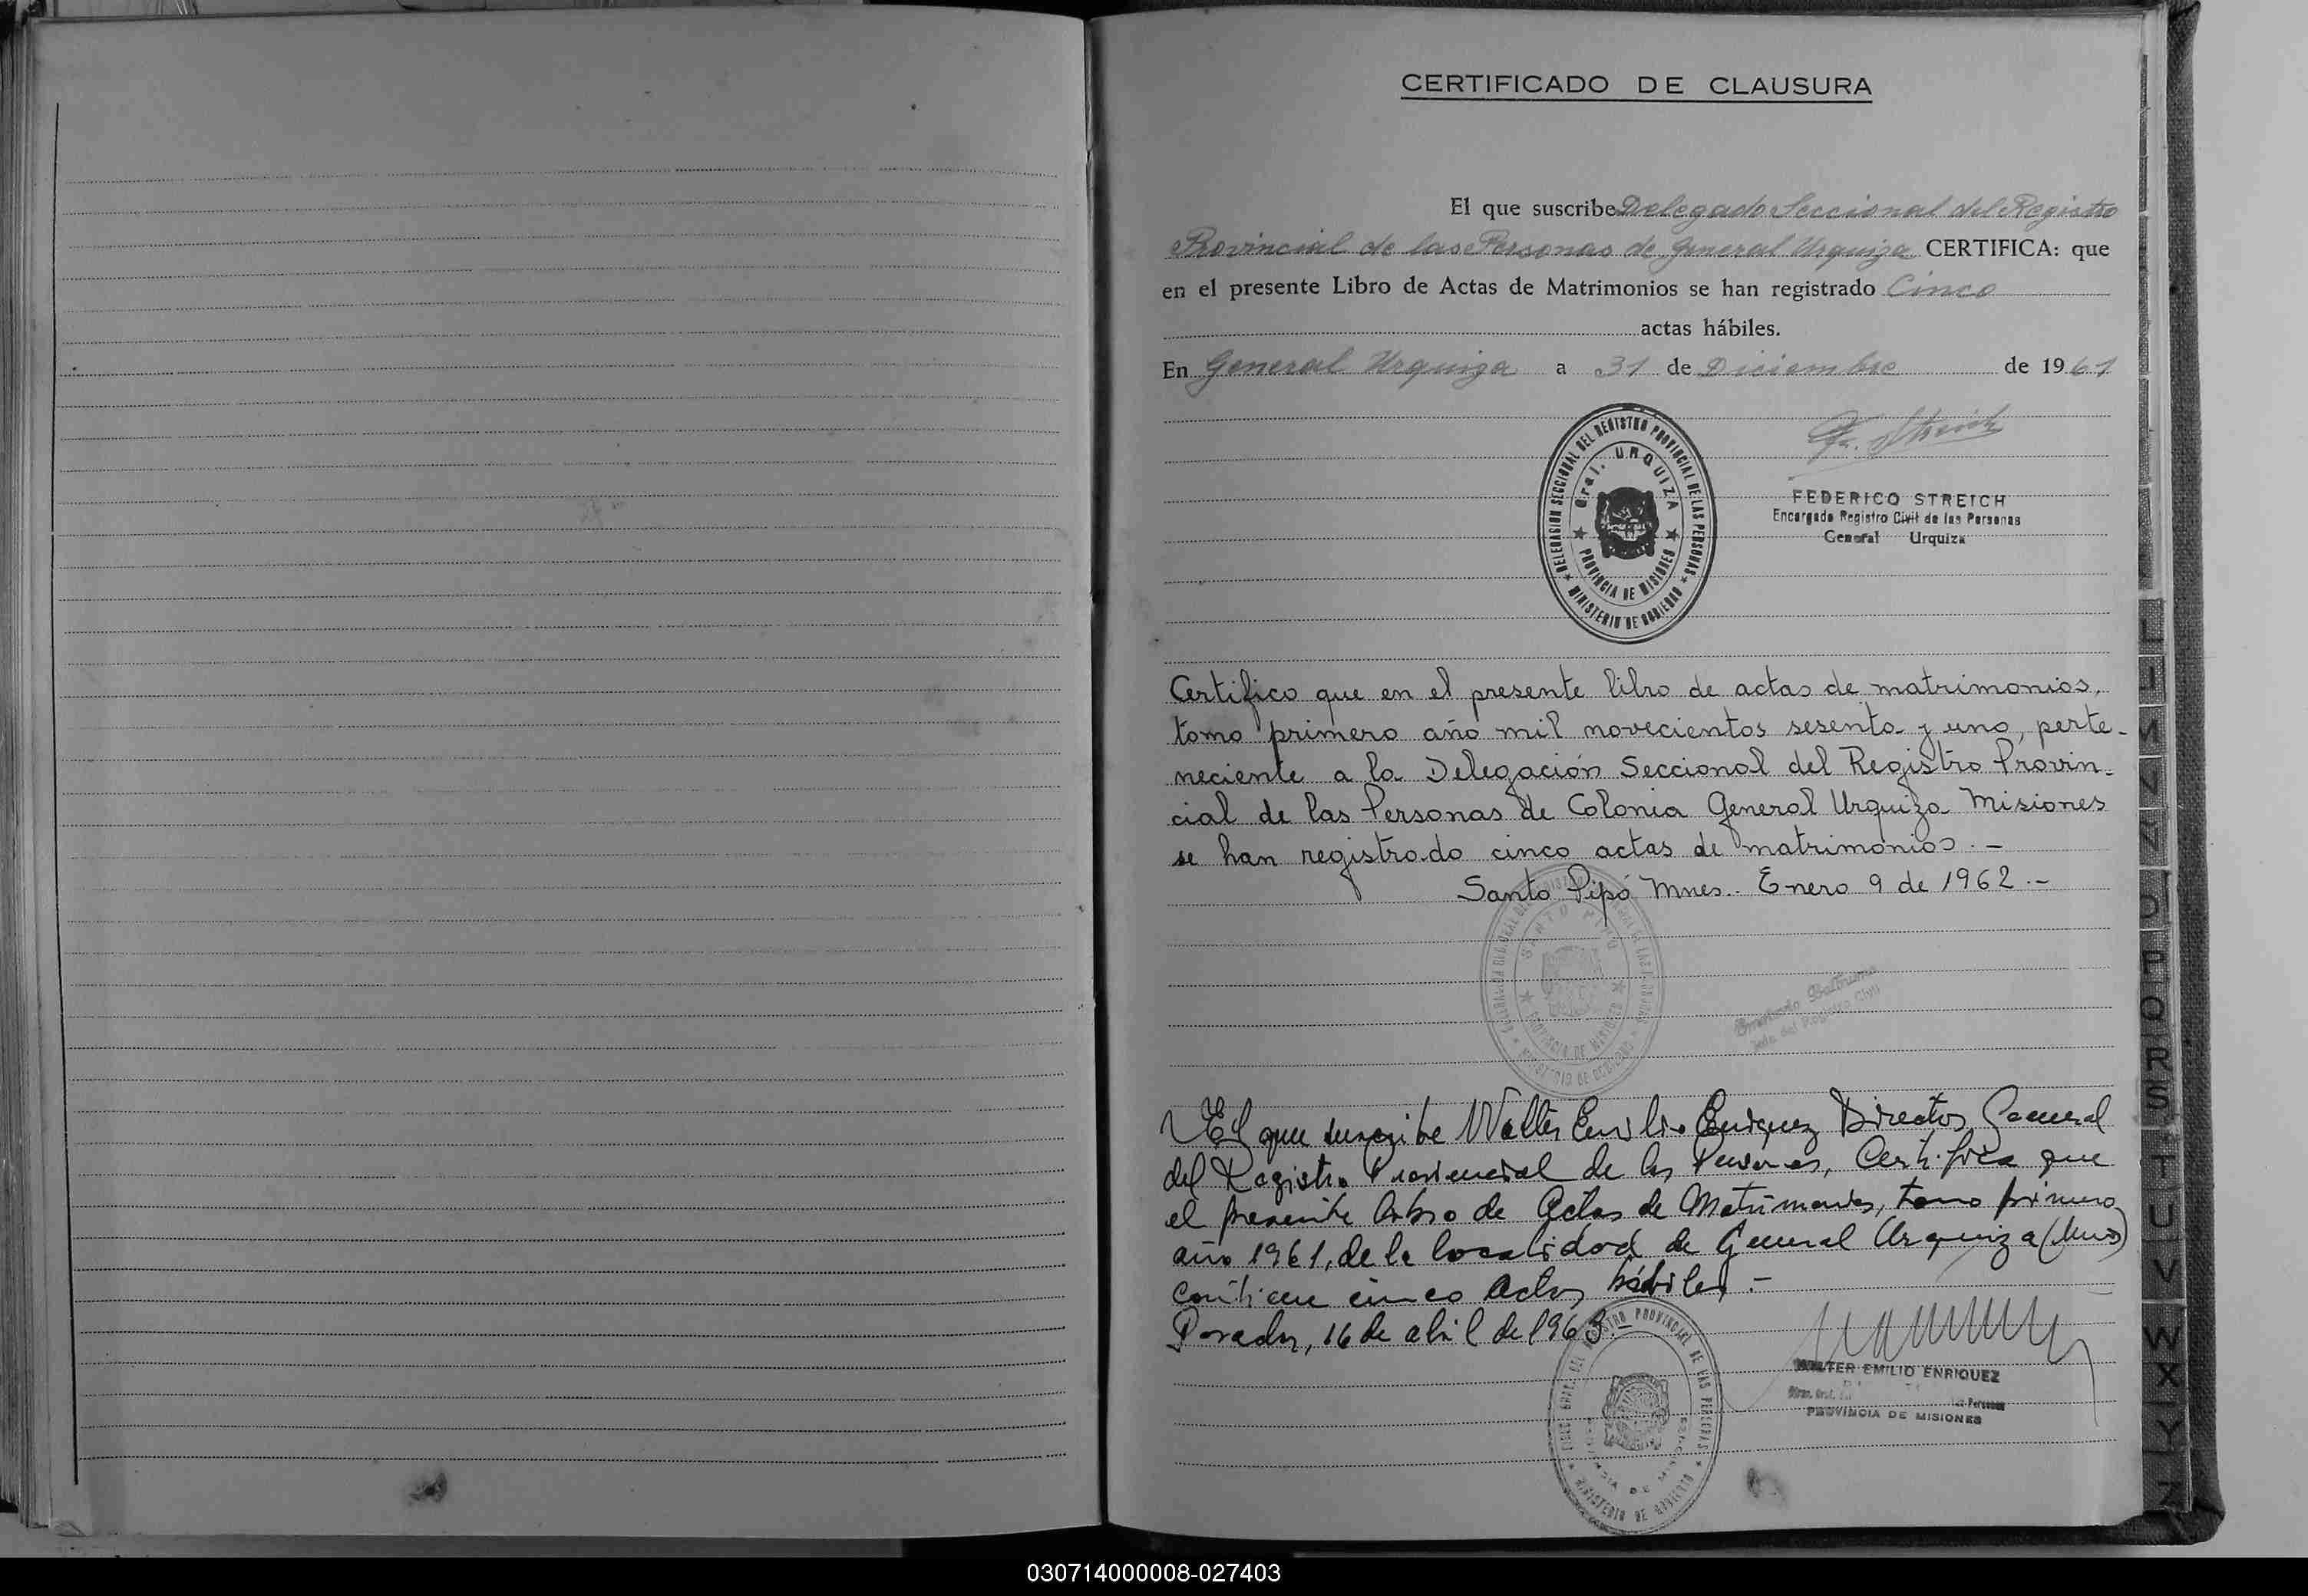 CERTIFICADO DE CLAUSURA
El que suscribe Delegado Seccional del Registro
Provincial de las Personas de General Urquiza CERTIFICA: que
en el presente Libro de Actas de Matrimonios se han registrado Cinco
actas hábiles.
En General Urquiza a 31 de Diciembre de 1961
DELEGACION SECCIONAL DEL REGISTRO PROVINCIAL DE LAS PERSONAS
Gral. URQUIZA
PROVINCIA DE MISIONES
MINISTERIO DE GOBIERNO
F. Streich
FEDERICO STREICH
Encargado Registro Civil de las Personas
General Urquiza
Certifico que en el presente libro de actas de matrimonios,
tomo primero año mil novecientos sesenta y uno, perte-
neciente a la Delegación Seccional del Registro Provin-
cial de las Personas de Colonia General Urquiza Misiones
se han registrado cinco actas de matrimonios.-
Santo Pipó Mnes.. Enero 9 de 1962.-
SANTO PIPO
PROVINCIA DE MISIONES
MINISTERIO DE GOBIERNO
Jefe del Registro Civil
El que suscribe Walter Emilio Enriquez Director General
del Registro Provincial de las Personas, Certifica que
el presente libro de Actas de Matrimonios, tomo primero
año 1961, de la localidad de General Urquiza (Mnes)
contiene cinco actas hábiles.-
Posadas, 16 de abril de 1963.-
REGISTRO PROVINCIAL DE LAS PERSONAS
MINISTERIO DE GOBIERNO
WALTER EMILIO ENRIQUEZ
PROVINCIA DE MISIONES
L
M
N
O
P
Q
R
S
T
U
V
W
X
Y
Z
030714000008-027403